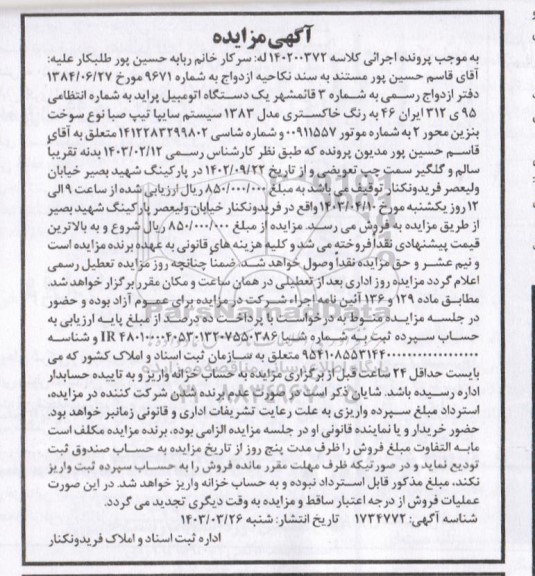 آگهی مزایده
به موجب پرونده اجرائی کلاسه ۱۴۰۲۰۰۳۷۲ له: سرکار خانم ربابه حسین پور طلبکار علیه:
آقای قاسم حسین پور مستند به سند نکاحیه ازدواج به شماره ۹۶۷۱ مورخ ۱۳۸۴/۰۶/۲۷
دفتر ازدواج رسمی به شماره ۳ قائمشهر یک دستگاه اتومبیل پراید به شماره انتظامی
۹۵ ی ۳۱۲ ایران ۴۶ به رنگ خاکستری مدل ۱۳۸۳ سیستم سایپا تیپ صبا نوع سوخت
بنزین محور ۲ به شماره موتور ۰۰۹۱۱۵۵۷ و شماره شاسی ۱۴۱۲۲۸۳۲۹۹۸۰۲ متعلق به آقای
قاسم حسین پور مدیون پرونده که طبق نظر کارشناس رسمی ۱۴۰۳/۰۲/۱۲ بدنه تقریباً
سالم و گلگیر سمت چپ تعویضی و از تاریخ ۱۴۰۲/۰۹/۲۲ در پارکینگ شهید بصیر خیابان
ولیعصر فریدونکنار توقیف می باشد به مبلغ ۸۵۰/۰۰۰/۰۰۰ ریال ارزیابی شده از ساعت ۹ الی
۱۲ روز یکشنبه مورخ ۱۴۰۳/۰۴/۱۰ واقع در فریدونکنار خیابان ولیعصر پارکینگ شهید بصیر
از طریق مزایده به فروش می رسد. مزایده از مبلغ ۸۵۰/۰۰۰/۰۰۰ ریال شروع و به بالاترین
قیمت پیشنهادی نقداً فروخته می شد و کلیه هزینه های قانونی به عهده برنده مزایده است
و نیم عشر و حق مزایده نقداً وصول خواهد شد. ضمنا چنانچه روز مزایده تعطیل رسمی
اعلام گردد مزایده روز اداری بعد از تعطیلی در همان ساعت و مکان مقرر برگزار خواهد شد
مطابق ماده ۱۲۹ و ۱۳۶ آئین نامه اجراء شرکت در مزایده برای عموم آزاد بوده و حضور
در جلسه مزایده منوط به درخواست با پرداخت ده درصد از مبلغ پایه ارزیابی به
حساب سپرده ثبت به شماره شبا IR و شناسه
متعلق به سازمان ثبت اسناد و املاک کشور که می
بایست حداقل ۲۴ ساعت قبل از برگزاری مزایده به حساب خزانه واریز و به تاییده حسابدار
اداره رسیده باشد. شایان ذکر است در صورت عدم برنده شدن شرکت کننده در مزایده،
استرداد مبلغ سپرده واریزی به علت رعایت تشریفات اداری و قانونی زمانبر خواهد بود.
حضور خریدار و یا نماینده قانونی او در جلسه مزایده الزامی بوده. برنده مزایده مکلف است
مابه التفاوت مبلغ فروش را ظرف مدت پنج روز از تاریخ مزایده به حساب صندوق ثبت
تودیع نماید و در صورتیکه ظرف مهلت مقرر مانده فروش را به حساب سپرده ثبت واریز
نکند، مبلغ مذکور قابل استرداد نبوده و به حساب خزانه واریز خواهد شد. در این صورت
عملیات فروش از درجه اعتبار ساقط و مزایده به وقت دیگری تجدید می گردد.
شناسه آگهی: ۱۷۳۴۷۷۲ تاریخ انتشار: شنبه ۱۴۰۳/۰۳/۲۶
اداره ثبت اسناد و املاک فریدونکنار
ParsNamadData